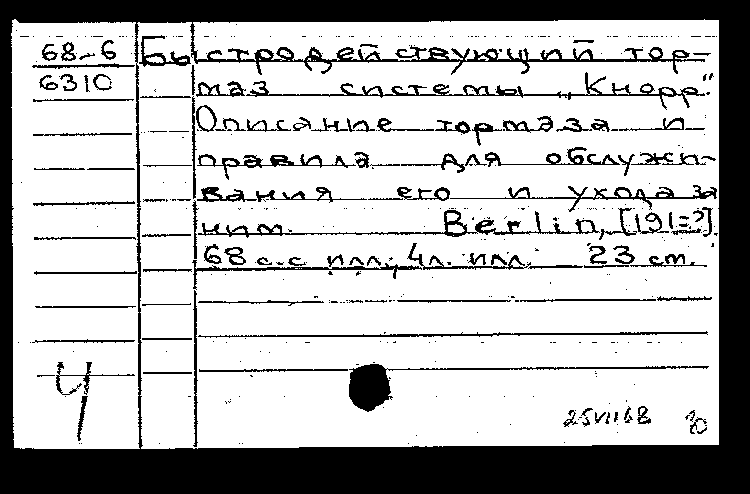 68-6 Быстродействующий тор-
6310 маз системы „Кнорр".
Описание тормаза и
правила для обслужи-
вания его и ухода за
ним. Berlin, [191=?]
68 с. с илл.; 4 л. илл. 23 см.
Ч
25VII68 Ю